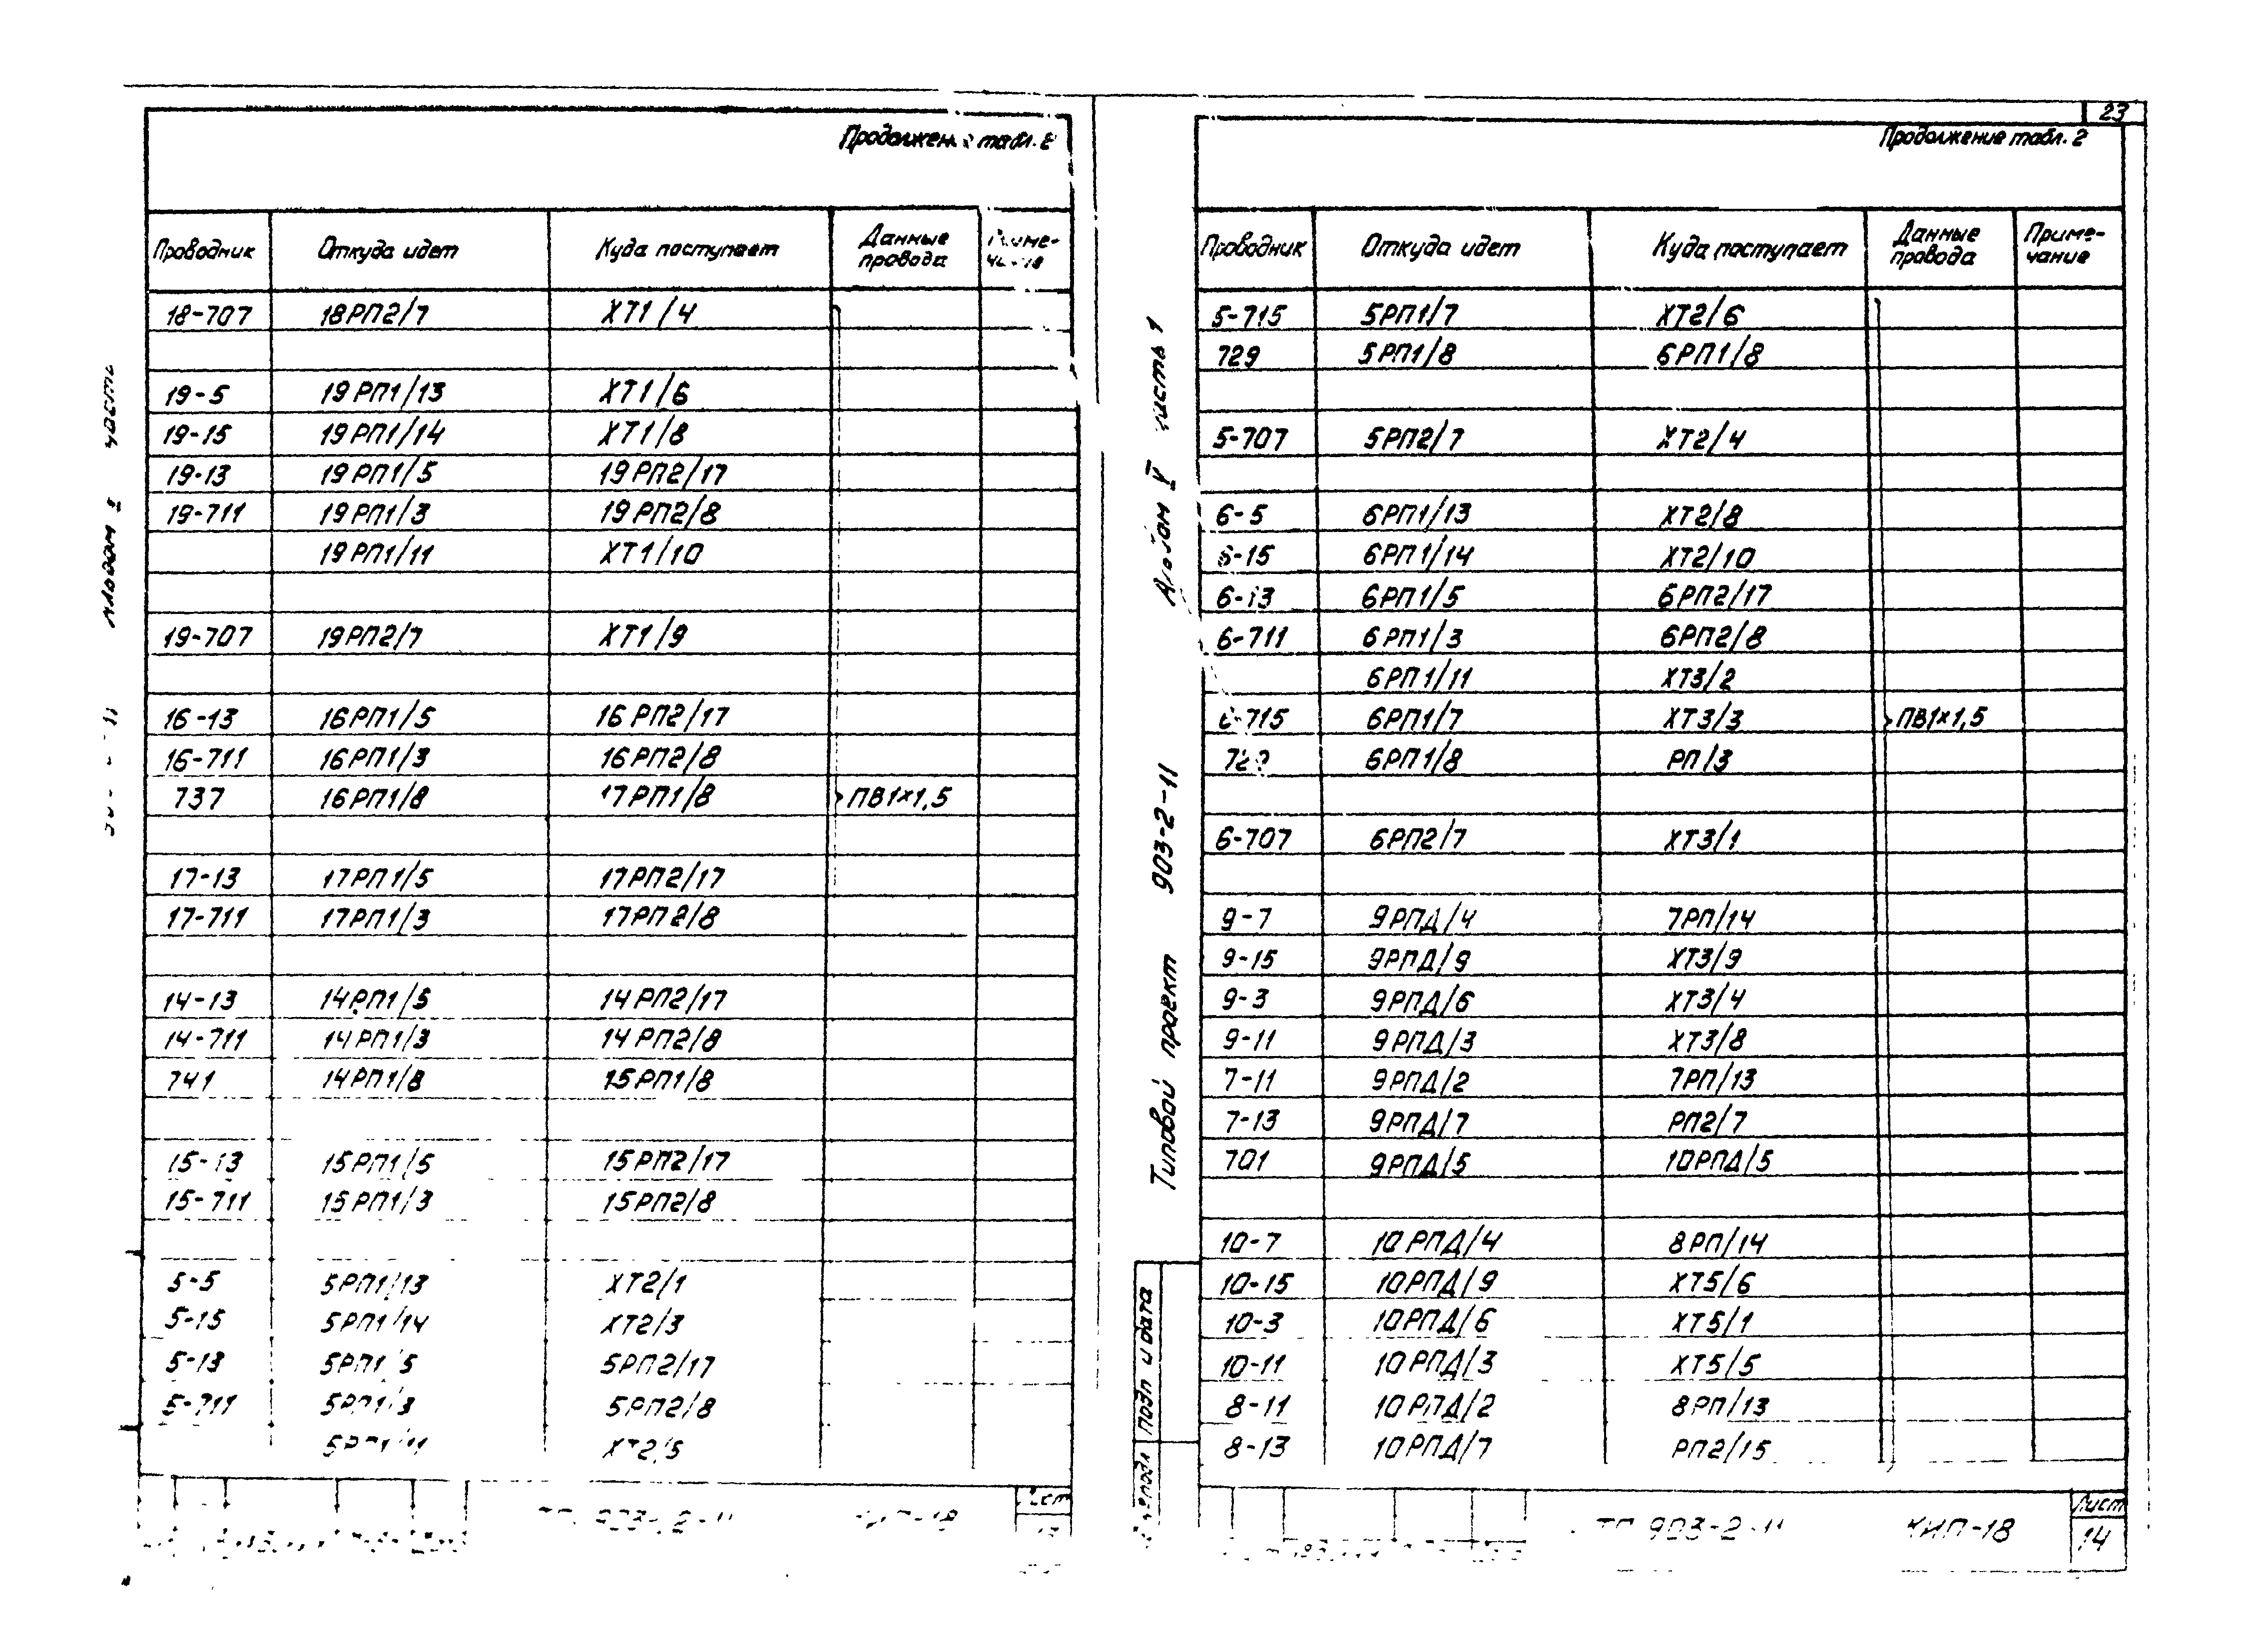 23
Продолжен табл. 2
Проводник Откуда идет Куда поступает Данные провода Приме-чание
18-707 18РП2/7 ХТ1/4
19-5 19РП1/13 ХТ1/6
19-15 19РП1/14 ХТ1/8
19-13 19РП1/5 19РП2/17
19-711 19РП1/3 19РП2/8
19РП1/11 ХТ1/10
19-707 19РП2/7 ХТ1/9
16-13 16РП1/5 16РП2/17
16-711 16РП1/3 16РП2/8
737 16РП1/8 17РП1/8 ПВ1×1,5
17-13 17РП1/5 17РП2/17
17-711 17РП1/3 17РП2/8
14-13 14РП1/5 14РП2/17
14-711 14РП1/3 14РП2/8
741 14РП1/8 15РП1/8
15-13 15РП1/5 15РП2/17
15-711 15РП1/3 15РП2/8
5-5 5РП1/13 ХТ2/1
5-15 5РП1/14 ХТ2/3
5-13 5РП1/5 5РП2/17
5-711 5РП1/3 5РП2/8
5РП1/11 ХТ2/5
903-2-11 КИП-18 Лист
Альбом V часть 1
Типовой проект 903-2-11
Подп и дата
Продолжение табл. 2
Проводник Откуда идет Куда поступает Данные провода Приме-чание
5-715 5РП1/7 ХТ2/6
729 5РП1/8 6РП1/8
5-707 5РП2/7 ХТ2/4
6-5 6РП1/13 ХТ2/8
6-15 6РП1/14 ХТ2/10
6-13 6РП1/5 6РП2/17
6-711 6РП1/3 6РП2/8
6РП1/11 ХТ3/2
6-715 6РП1/7 ХТ3/3 ПВ1×1,5
729 6РП1/8 РП/3
6-707 6РП2/7 ХТ3/1
9-7 9РПД/4 7РП/14
9-15 9РПД/9 ХТ3/9
9-3 9РПД/6 ХТ3/4
9-11 9РПД/3 ХТ3/8
7-11 9РПД/2 7РП/13
7-13 9РПД/7 РП2/7
701 9РПД/5 10РПД/5
10-7 10РПД/4 8РП/14
10-15 10РПД/9 ХТ5/6
10-3 10РПД/6 ХТ5/1
10-11 10РПД/3 ХТ5/5
8-11 10РПД/2 8РП/13
8-13 10РПД/7 РП2/15
ТП 903-2-11 КИП-18 Лист
14